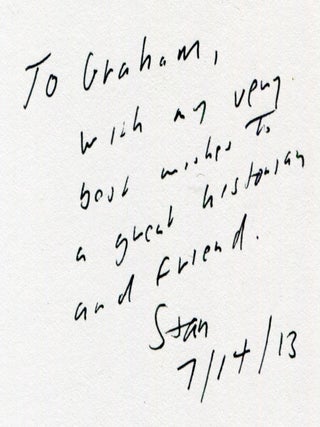 To Graham,
with my very
best wishes to
a great historian
and friend.
Stan
7/14/13